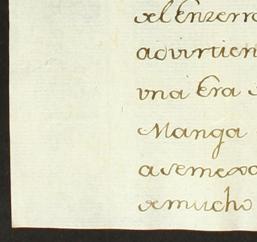 del Enzerro
advirtien
vna Era
Manga
asemexa
demucho